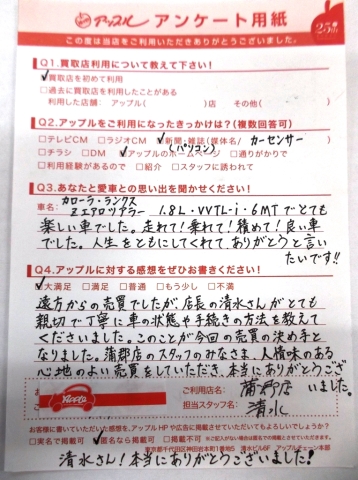 アップル アンケート用紙 25th
この度は当店をご利用いただきありがとうございました。
Q1.買取店利用について教えて下さい!
✓買取店を初めて利用
□過去に買取店を利用したことがある
利用した店舗: アップル( )店 その他( )
Q2.アップルをご利用になったきっかけは?(複数回答可)
□テレビCM □ラジオCM ✓新聞・雑誌(媒体名/ カーセンサー
(パソコン)
□チラシ □DM ✓アップルのホームページ □通りがかりで
□利用経験があるので □紹介 □スタッフに誘われて
Q3.あなたと愛車との思い出を聞かせください!
車名: カローラ・ランクス
Zエアロツアラー 1.8L・VVTL-i・6MTでとても
楽しい車でした。走れて!乗れて!積めて!良い車
でした。人生をともにしてくれて、ありがとうと言い
たいです!!
Q4.アップルに対する感想をぜひお書きください!
✓大満足 □満足 □普通 □もう少し □不満
遠方からの売買でしたが、店長の清水さんがとても
親切で丁寧に車の状態や手続きの方法を教えて
くださいました。このことが今回の売買の決め手と
なりました。蒲郡店のスタッフのみなさま、人情味のある
心地のよい売買をしていただき、本当にありがとうござ
いました。
ご利用店名: 蒲郡店
担当スタッフ名: 清水
お客様に書いていただいた感想を、アップルHPや広告に掲載させていただいてもよろしいでしょうか?
□実名で掲載可 ✓匿名なら掲載可 □掲載不可
東京都千代田区神田岩本町1番地5 清水ビル6F アップルチェーン本部
清水さん!本当にありがとうございました!